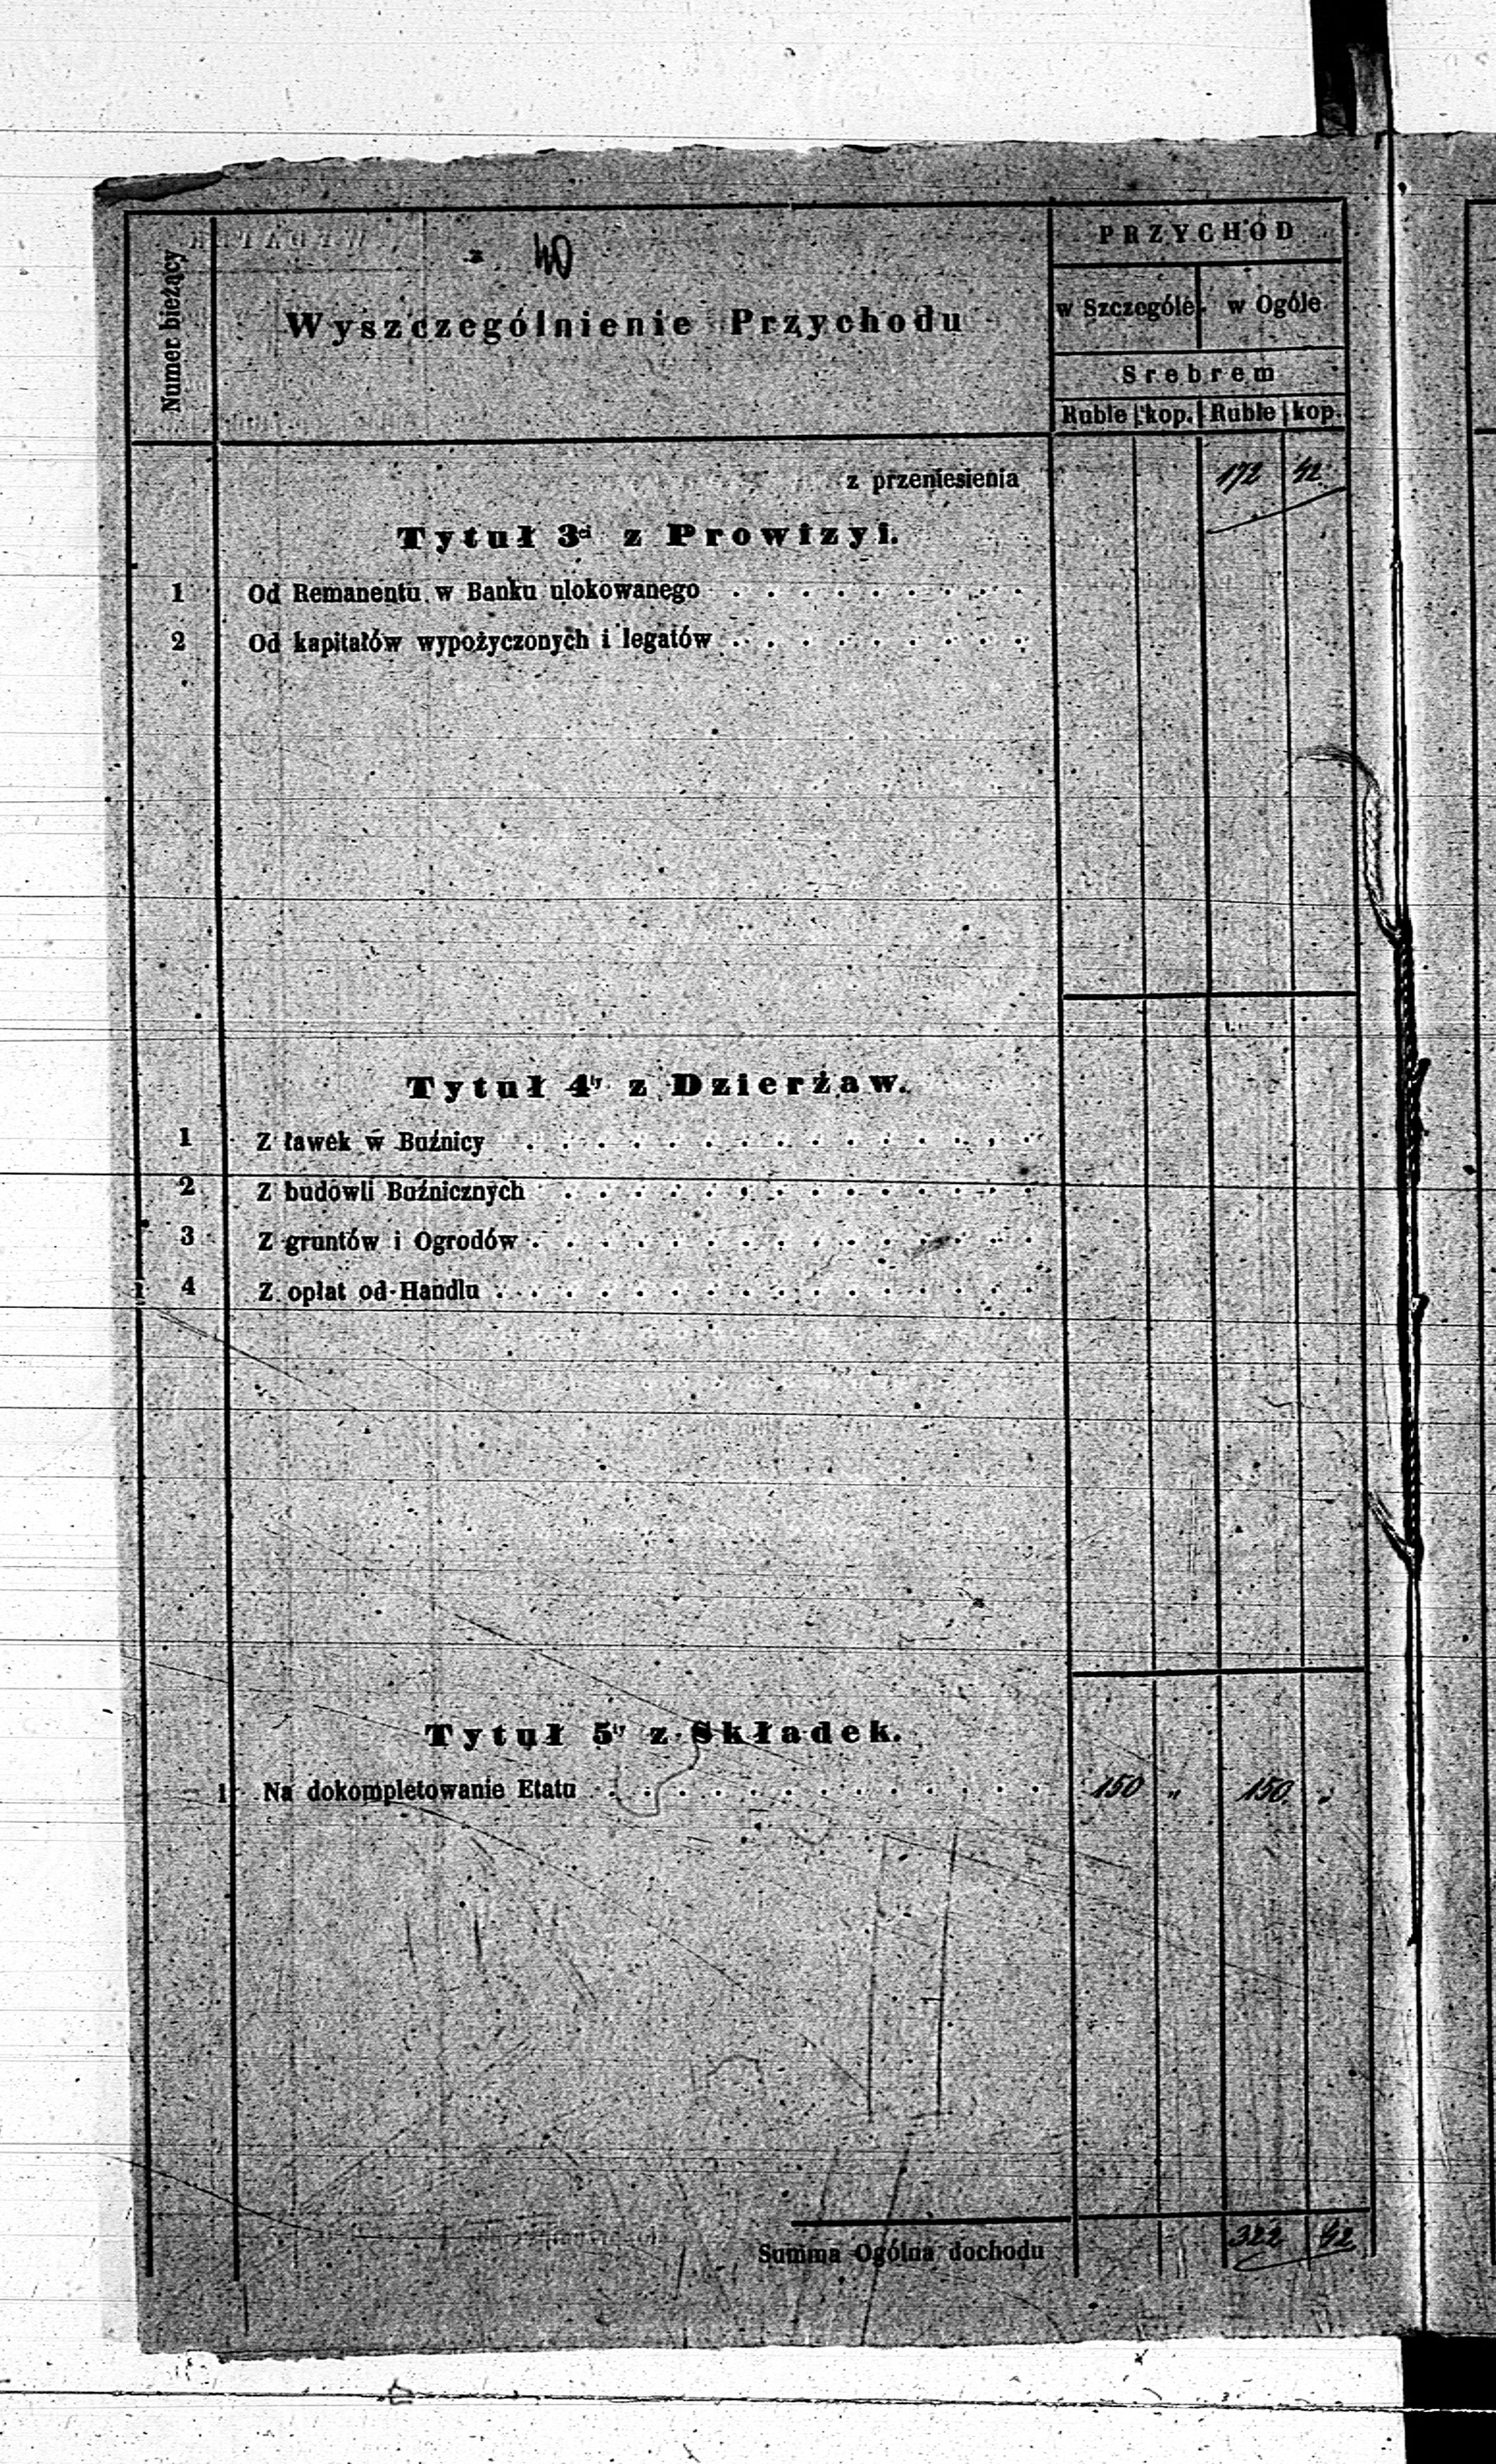 40
Numer bieżący
Wyszczególnienie Przychodu
PRZYCHÓD
w Szczególe w Ogóle
Srebrem
Ruble kop. Ruble kop.
z przeniesienia 172 42
Tytuł 3ci z Prowizyi.
1 Od Remanentu w Banku ulokowanego
2 Od kapitałów wypożyczonych i legatów
Tytuł 4ty z Dzierżaw.
1 Z ławek w Buźnicy
2 Z budowli Buźnicznych
3 Z gruntów i Ogrodów
4 Z opłat od Handlu
Tytuł 5ty z Składek.
1 Na dokompletowanie Etatu 150 „ 150 „
Summa Ogólna dochodu 322 42